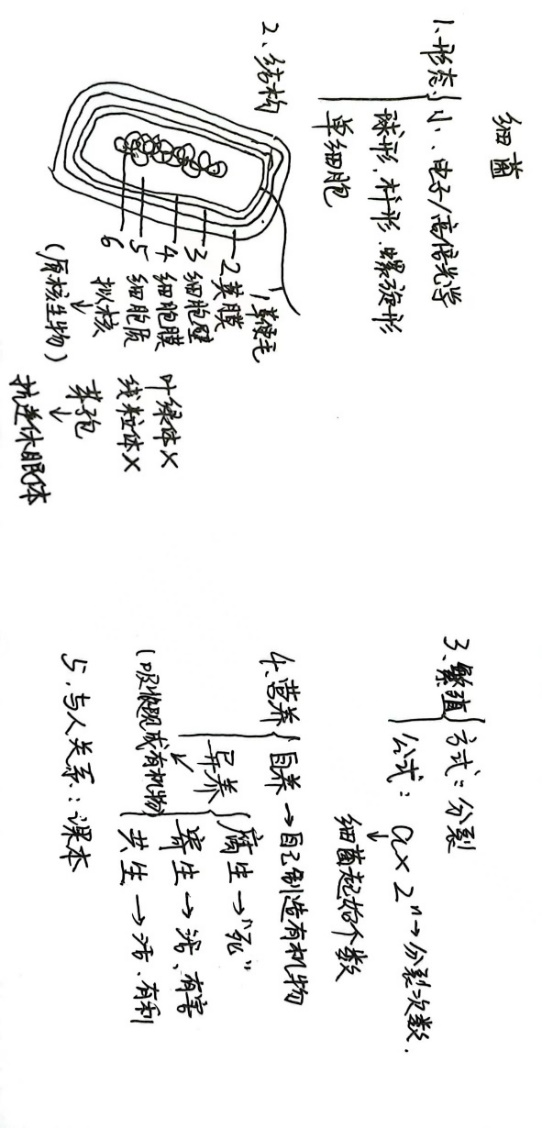 细菌
1、形态 小、电子/高倍光学
球形、杆形、螺旋形
单细胞
2、结构
1 鞭毛
2 荚膜
3 细胞壁
4 细胞膜 叶绿体×
5 细胞质 线粒体×
6 拟核 芽孢
(原核生物) 抗逆休眠体
3、繁殖 方式：分裂
公式：a×2ⁿ→分裂次数.
细菌起始个数
4、营养 自养→自己制造有机物
异养 腐生→"死"
(吸收现成有机物) 寄生→活、有害
共生→活、有利
5、与人关系：课本